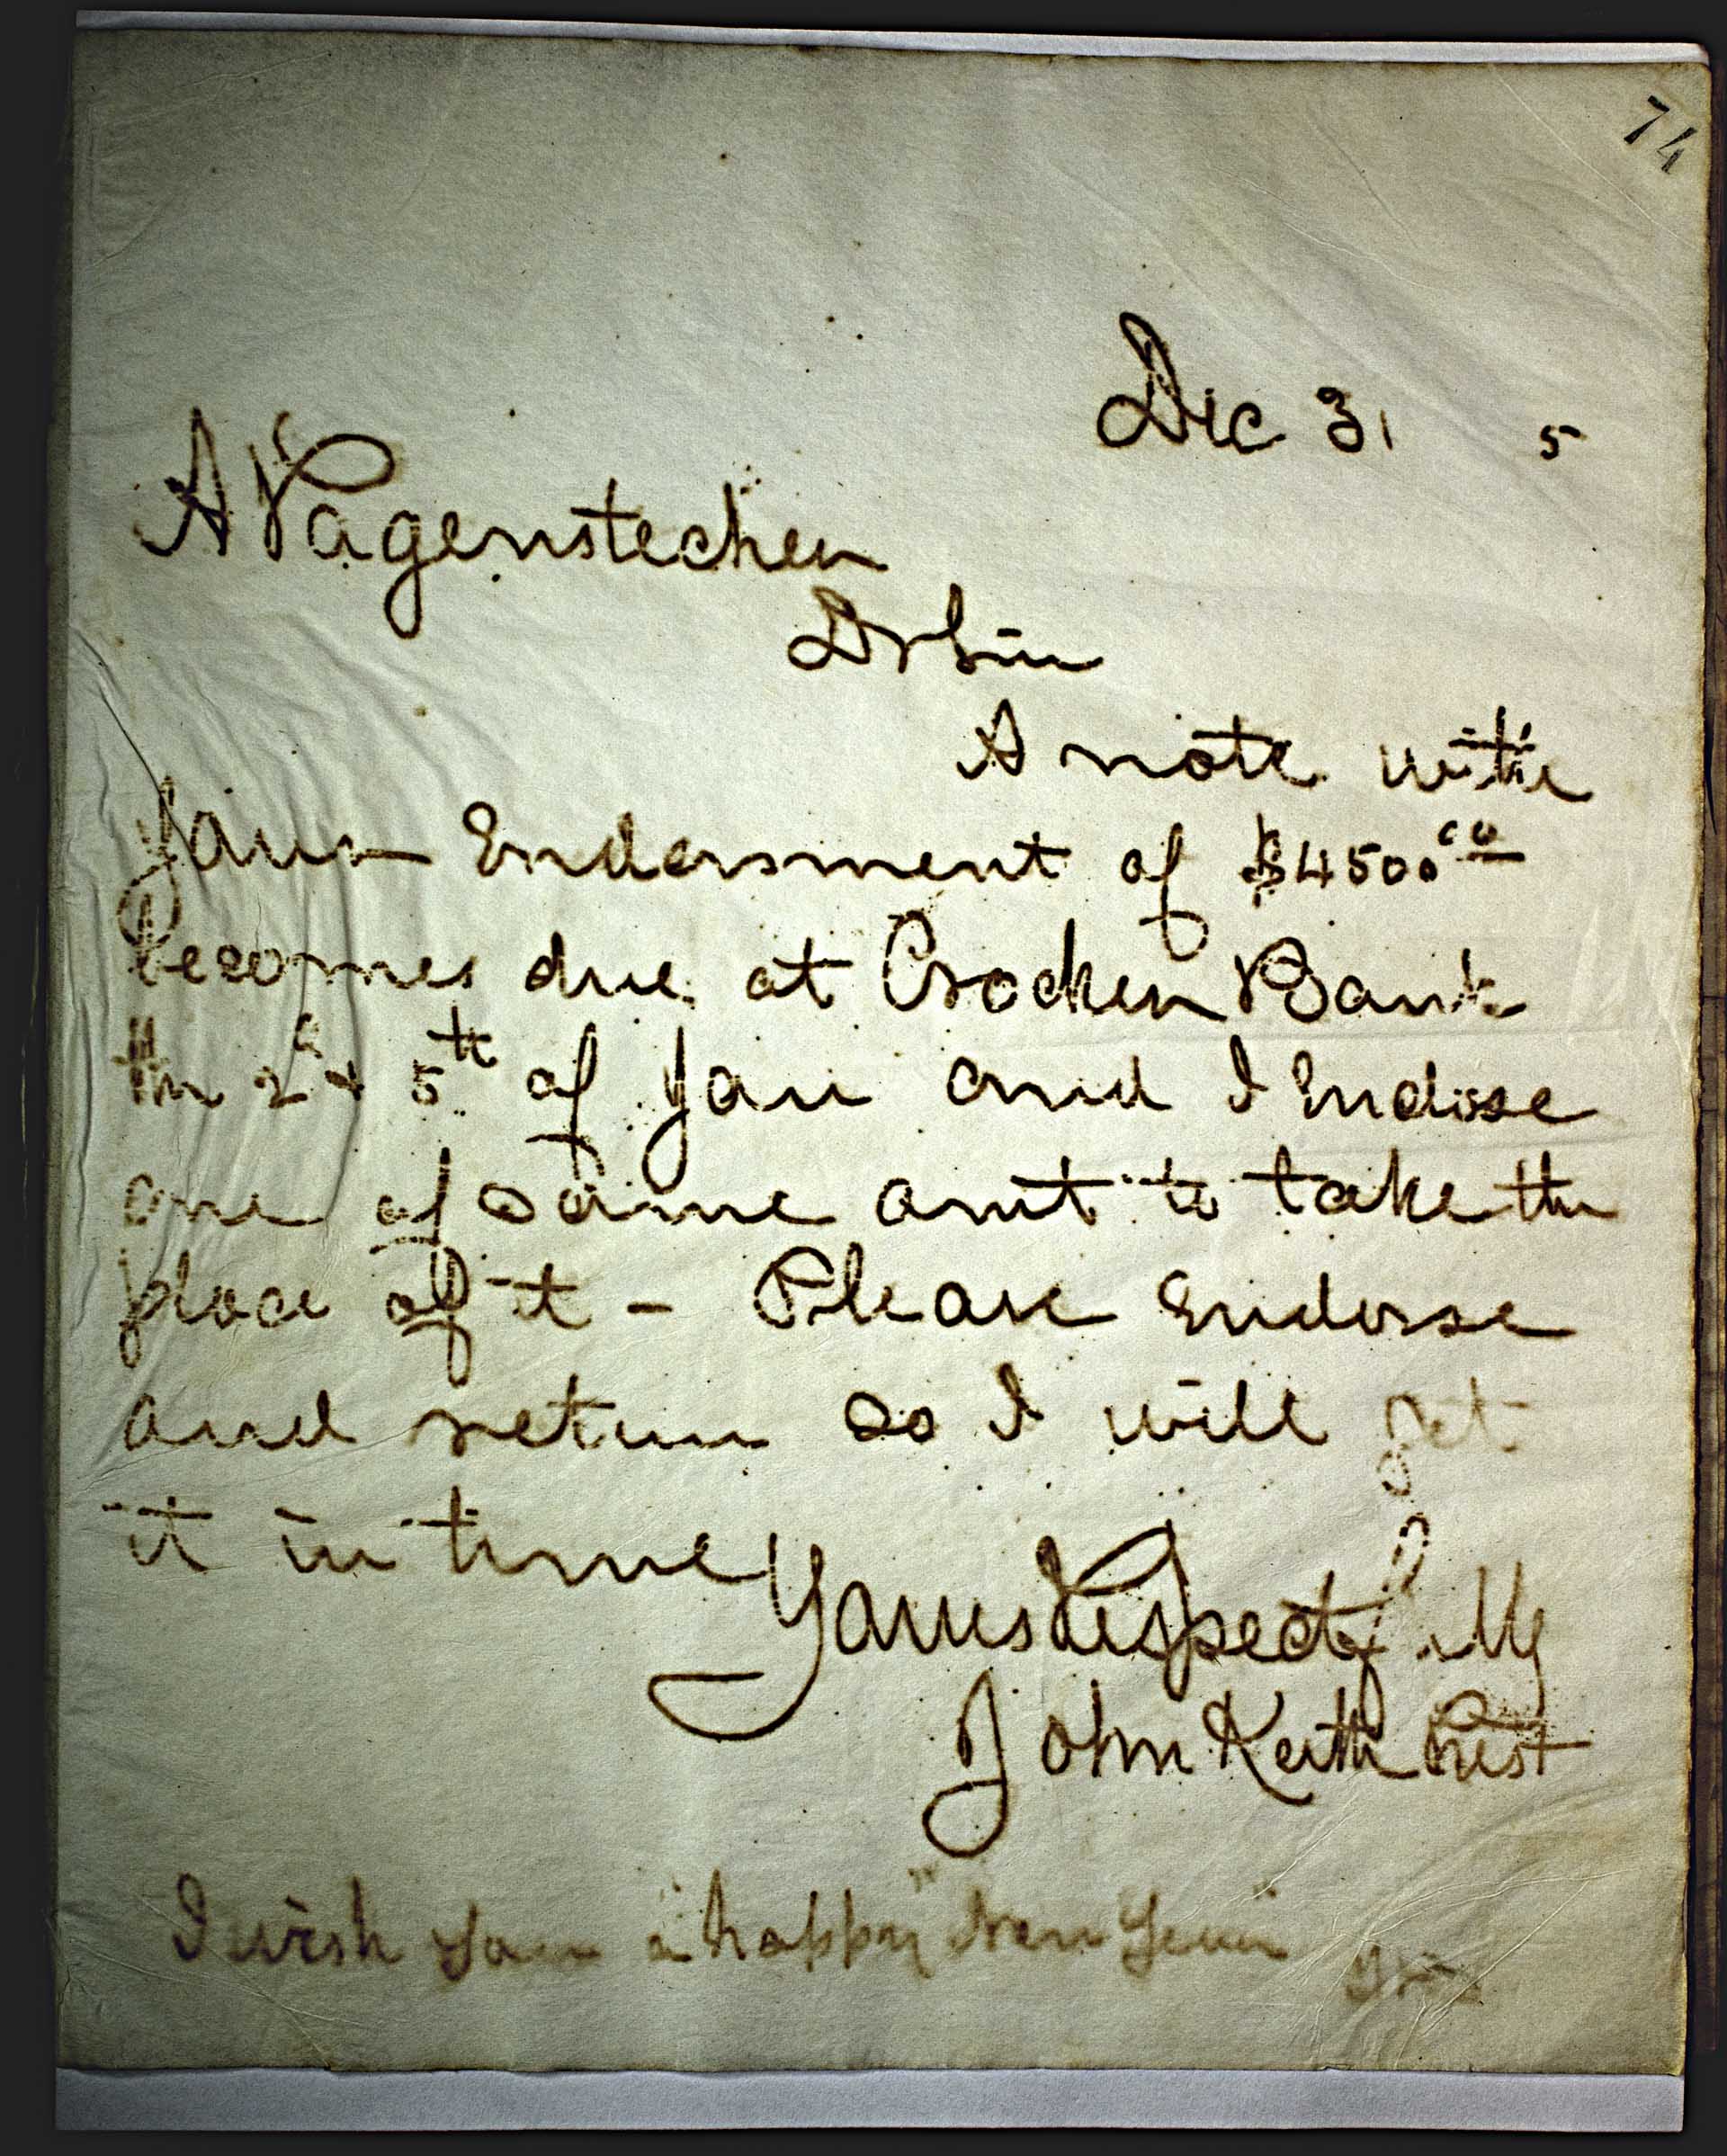 74
Dec 31 5
A Pagenstecher
Dr Sir
A note with
your Endorsment of $4500 00
becomes due at Crocker Bank
the 2d + 5th of Jan and I Enclose
one of same amt to take the
place of it - Please Endorse
and return so I will get
it in time
Yours Respectfully
John Keith Prest
I wish you a happy New Year